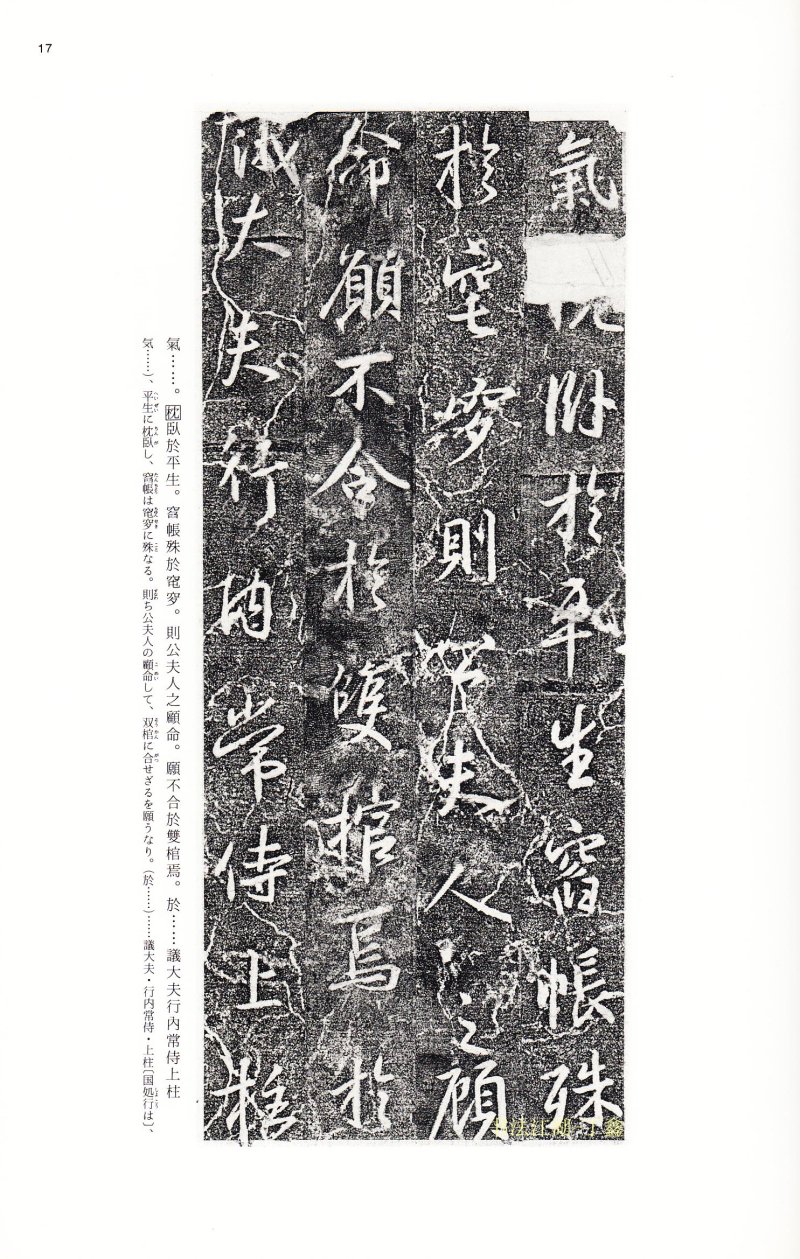 17
氣
枕臥於平生窅帳殊
於窀穸則公夫人之顧
命願不合於雙棺焉於
議大夫行內常侍上柱
氣……。枕臥於平生。窅帳殊於窀穸。則公夫人之顧命。願不合於雙棺焉。於……議大夫行內常侍上柱
気……)、平生に枕臥し、窅帳は窀穸に殊なる。則ち公夫人の顧命して、双棺に合せざるを願うなり。(於……)……議大夫・行内常侍・上柱〔国処行は〕、